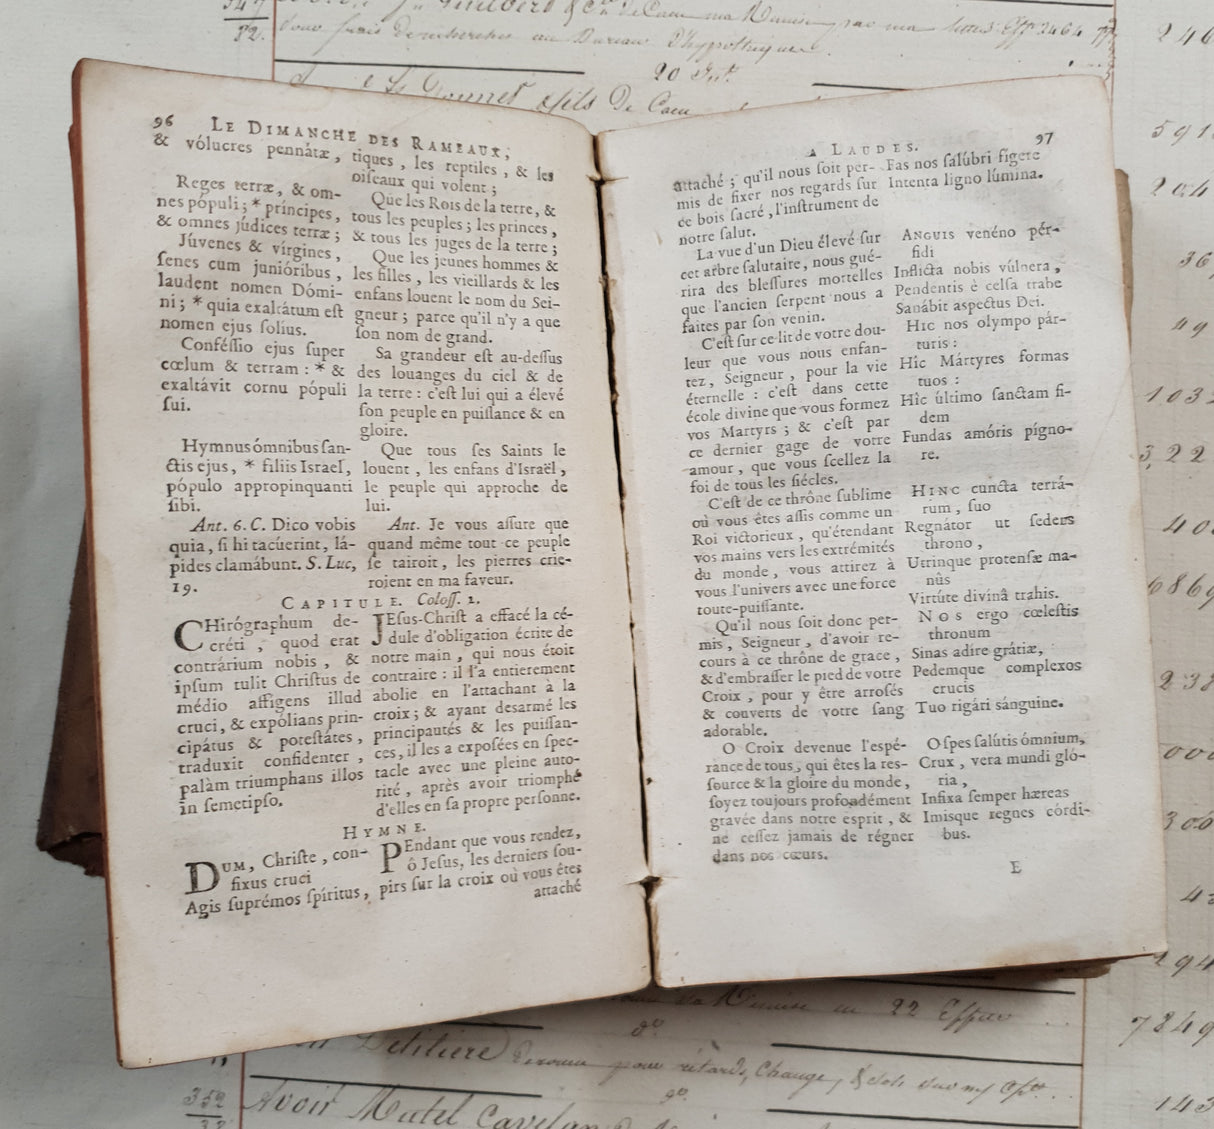 347
92.
20
96
LE DIMANCHE DES RAMEAUX;
& vólucres pennátæ,
Reges terræ, & om-
nes pópuli; * príncipes,
& omnes júdices terræ;
Júvenes & vírgines,
ſenes cum junióribus,
laudent nomen Dómi-
ni; * quia exaltátum eſt
nomen ejus ſolíus.
Conféſſio ejus ſuper
cœlum & terram: * &
exaltávit cornu pópuli
ſui.
Hymnus ómnibus ſan-
ctis ejus, * filiis Iſraël,
pópulo appropinquanti
ſibi.
Ant. 6. C. Dico vobis
quia, ſi hi tacúerint, lá-
pides clamábunt. S. Luc,
19.
tiques, les reptiles, & les
oiſeaux qui volent;
Que les Rois de la terre, &
tous les peuples; les princes,
& tous les juges de la terre;
Que les jeunes hommes &
les filles, les vieillards & les
enfans louent le nom du Sei-
gneur; parce qu'il n'y a que
ſon nom de grand.
Sa grandeur eſt au-deſſus
des louanges du ciel & de
la terre: c'eſt lui qui a élevé
ſon peuple en puiſſance & en
gloire.
Que tous ſes Saints le
louent, les enfans d'Iſraël,
le peuple qui approche de
lui.
Ant. Je vous aſſure que
quand même tout ce peuple
ſe tairoit, les pierres crie-
roient en ma faveur.
CAPITULE. Coloſſ. 2.
CHirógraphum de-
créti, quod erat
contrárium nobis, &
ipſum tulit Chriſtus de
médio affigens illud
cruci, & expólians prin-
cipátus & poteſtátes,
traduxit confidenter,
palàm triumphans illos
in ſemetipſo.
JEſus-Chriſt a effacé la cé-
dule d'obligation écrite de
notre main, qui nous étoit
contraire: il l'a entierement
abolie en l'attachant à la
croix; & ayant deſarmé les
principautés & les puiſſan-
ces, il les a expoſées en ſpec-
tacle avec une pleine auto-
rité, après avoir triomphé
d'elles en ſa propre perſonne.
HYMNE.
DUM, Chriſte, con-
fixus cruci
Agis ſuprémos ſpíritus,
PEndant que vous rendez,
ô Jeſus, les derniers ſou-
pirs ſur la croix où vous êtes
attaché
97
A LAUDES.
attaché; qu'il nous ſoit per-
mis de fixer nos regards ſur
ce bois ſacré, l'inſtrument de
notre ſalut.
La vue d'un Dieu élevé ſur
cet arbre ſalutaire, nous gué-
rira des bleſſures mortelles
que l'ancien ſerpent nous a
faites par ſon venin.
C'eſt ſur ce lit de votre dou-
leur que vous nous enfan-
tez, Seigneur, pour la vie
éternelle: c'eſt dans cette
école divine que vous formez
vos Martyrs; & c'eſt par
ce dernier gage de votre
amour, que vous ſcellez la
foi de tous les ſiécles.
C'eſt de ce thrône ſublime
où vous êtes aſſis comme un
Roi victorieux, qu'étendant
vos mains vers les extrémités
du monde, vous attirez à
vous l'univers avec une force
toute-puiſſante.
Qu'il nous ſoit donc per-
mis, Seigneur, d'avoir re-
cours à ce thrône de grace,
& d'embraſſer le pied de votre
Croix, pour y être arroſés
& couverts de votre ſang
adorable.
O Croix devenue l'eſpé-
rance de tous, qui êtes la reſ-
ſource & la gloire du monde,
ſoyez toujours profondément
gravée dans notre eſprit, &
ne ceſſez jamais de régner
dans nos cœurs.
Fas nos ſalúbri fígere
Intenta ligno lúmina.
ANGUIS venéno pér-
fidi
Inflicta nobis vúlnera,
Pendentis è celſa trabe
Sanábit aspectus Dei.
HIC nos olympo pár-
turis:
Hîc Mártyres formas
tuos:
Hîc último ſanctam fi-
dem
Fundas amóris pígno-
re.
HINC cuncta terrá-
rum, ſuo
Regnátor ut ſedens
throno,
Utrinque protenſæ ma-
nûs
Virtúte divinâ trahis.
NOS ergo cœleſtis
thronum
Sinas adíre grátiæ,
Pedemque complexos
crucis
Tuo rigári sánguine.
O ſpes salútis ómnium,
Crux, vera mundi gló-
ria,
Infixa ſemper hæreas
Imisque regnes córdi-
bus.
E
591
204
49
1032
7849
143
352